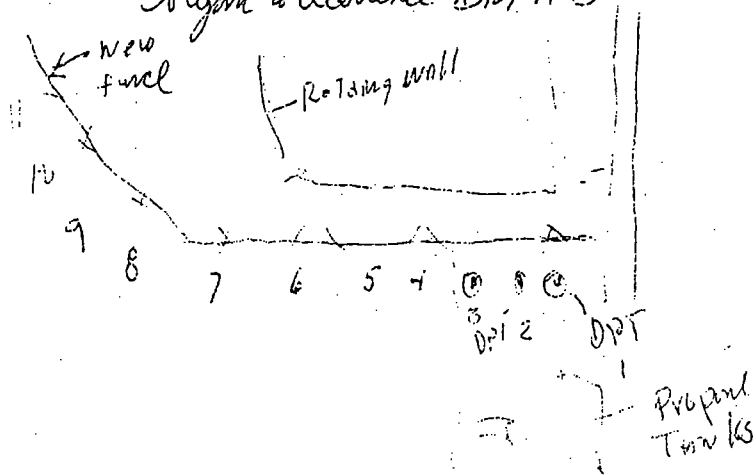 new
fence
Retaing wall
11
10
9
8
7
6
5
4
3
DPT 2
DPT
1
Propane
Tanks